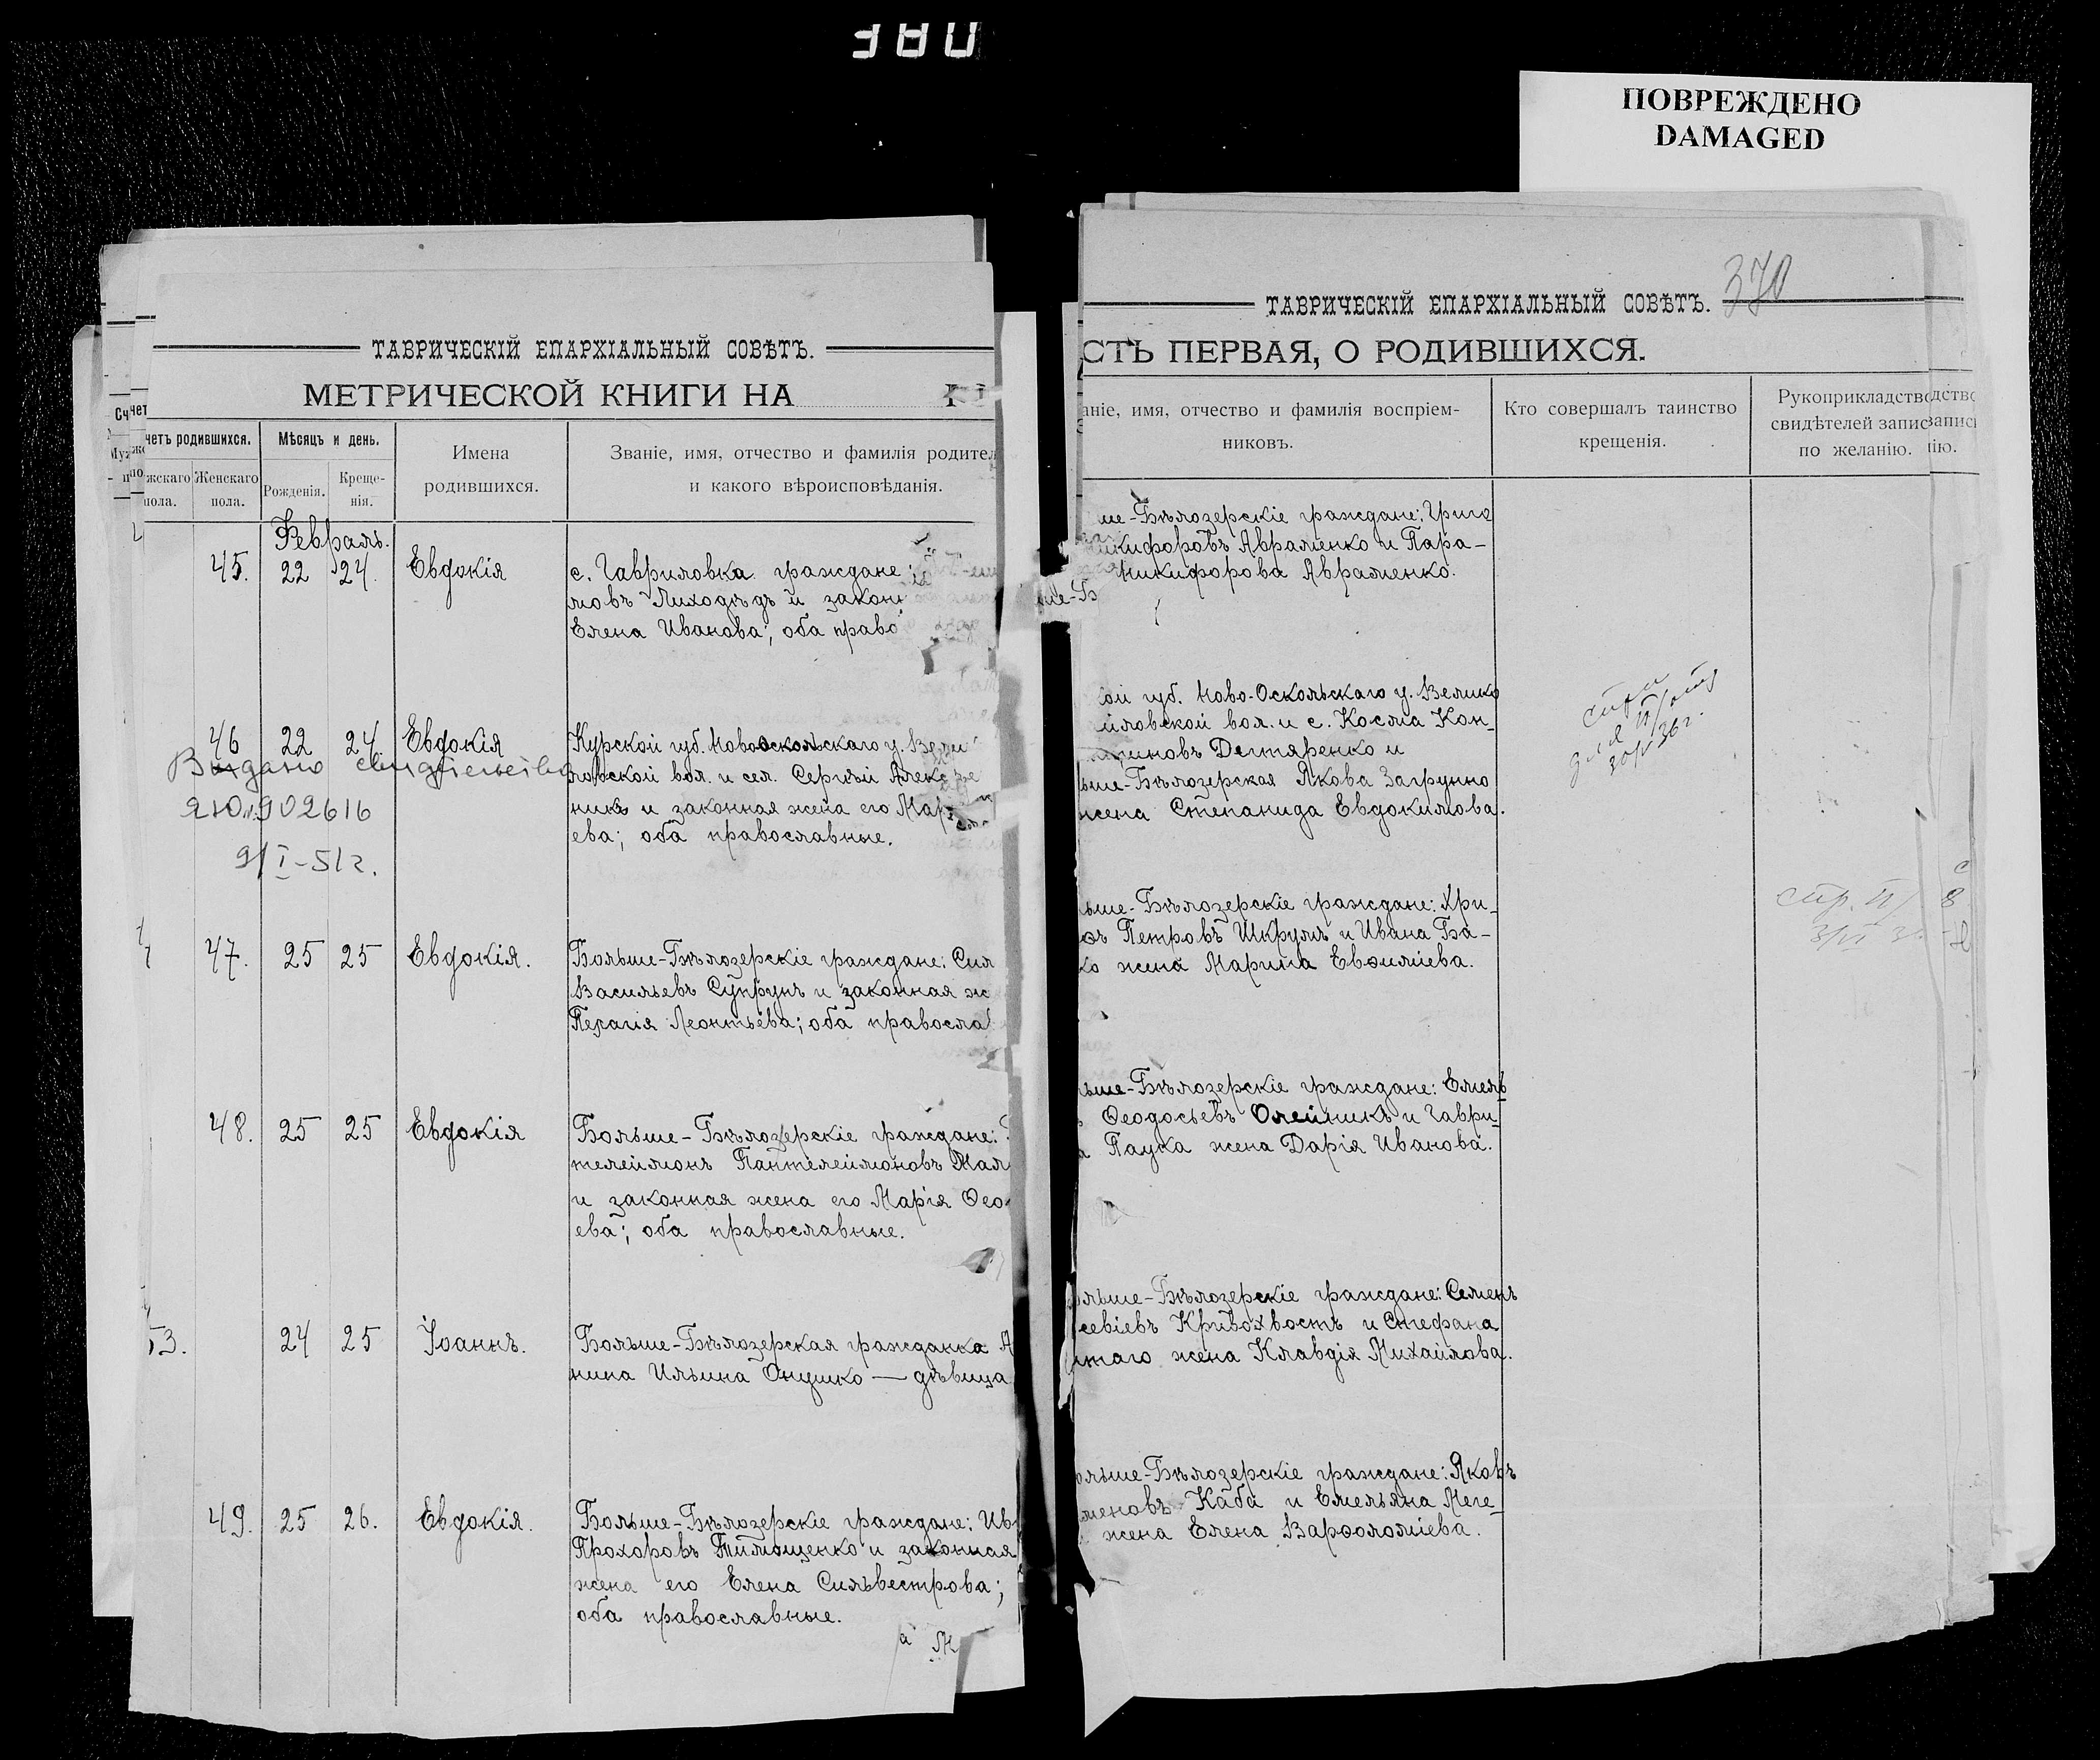 ПОВРЕЖДЕНО
DAMAGED
ТАВРИЧЕСКІЙ ЕПАРХІАЛЬНЫЙ СОВѢТЪ.
МЕТРИЧЕСКОЙ КНИГИ НА
четъ родившихся.
Мѣсяцъ и день.
Имена
родившихся.
Званіе, имя, отчество и фамилія родител
и какого вѣроисповѣданія.
жскаго
пола.
Женскаго
пола.
Рожденія.
Креще-
нія.
Февраль.
45. 22 24. Евдокія
с. Гавриловка граждане:
мовъ Лиходѣдъ и закон
Елена Иванова; оба право
46 22 24. Евдокія
Выдано свидетельство
902616
9/I-51г.
Курской губ. Новооскольскаго у. Вели
ловской вол. и сел. Сергѣй Алекс
никъ и законная жена его Мар
ева; оба православные.
47. 25 25 Евдокія.
Больше-Бѣлозерскіе граждане: Сил
Васильевъ Супрунъ и законная ж
Пелагія Леонтьева; оба правосла
48. 25 25 Евдокія
Больше-Бѣлозерскіе граждане:
телеймонъ Пантелеймоновъ Мал
и законная жена его Марія Ѳео
ева; оба православные.
53. 24 25 Іоаннъ.
Больше-Бѣлозерская гражданка А
нина Ильина Онушко — дѣвица
49. 25 26. Евдокія.
Больше-Бѣлозерскіе граждане: Ив
Прохоровъ Тимощенко и законная
жена его Елена Сильвестрова;
оба православные.
370
ТАВРИЧЕСКІЙ ЕПАРХІАЛЬНЫЙ СОВѢТЪ.
СТЬ ПЕРВАЯ, О РОДИВШИХСЯ.
аніе, имя, отчество и фамилія воспріем-
никовъ.
Кто совершалъ таинство
крещенія.
Рукоприкладство
свидѣтелей запис
по желанію.
ше-Бѣлозерскіе граждане: Григо
икифоровъ Авраменко и Пара-
Никифорова Авраменко.
кой губ. Ново-Оскольскаго у. Велико
йловской вол. и с. Косма Кон-
тиновъ Дегтяренко и
ьше-Бѣлозерская Якова Загрунно
жена Степанида Евдокимова.
ьше-Бѣлозерскіе граждане: Хри-
Петровъ Шкруль и Ивана Ба-
ко жена Марина Евѳиміева.
ьше-Бѣлозерскіе граждане: Емель
Ѳеодосьевъ Олейникъ и Гаври-
Паука жена Дарія Иванова.
ольше-Бѣлозерскіе граждане: Семенъ
севіевъ Кривохвостъ и Стефана
жена Клавдія Михайлова.
ольше-Бѣлозерскіе граждане: Яковъ
меновъ Каба и Емельяна Меге-
жена Елена Варѳоломіева.